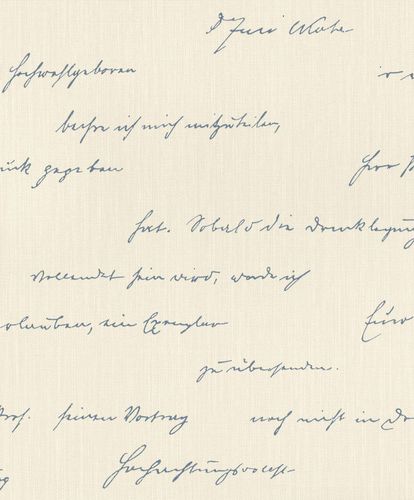 Hochwohlgeboren
beehre ich mich mitzuteilen,
ück gegeben Herr
hat. Sobald die Drucklegung
vollendet sein wird, werde ich
erlauben, ein Exemplar Euer
zu übersenden.
Prof. seinen Vortrag noch nicht in Dr
Hochachtungsvollst